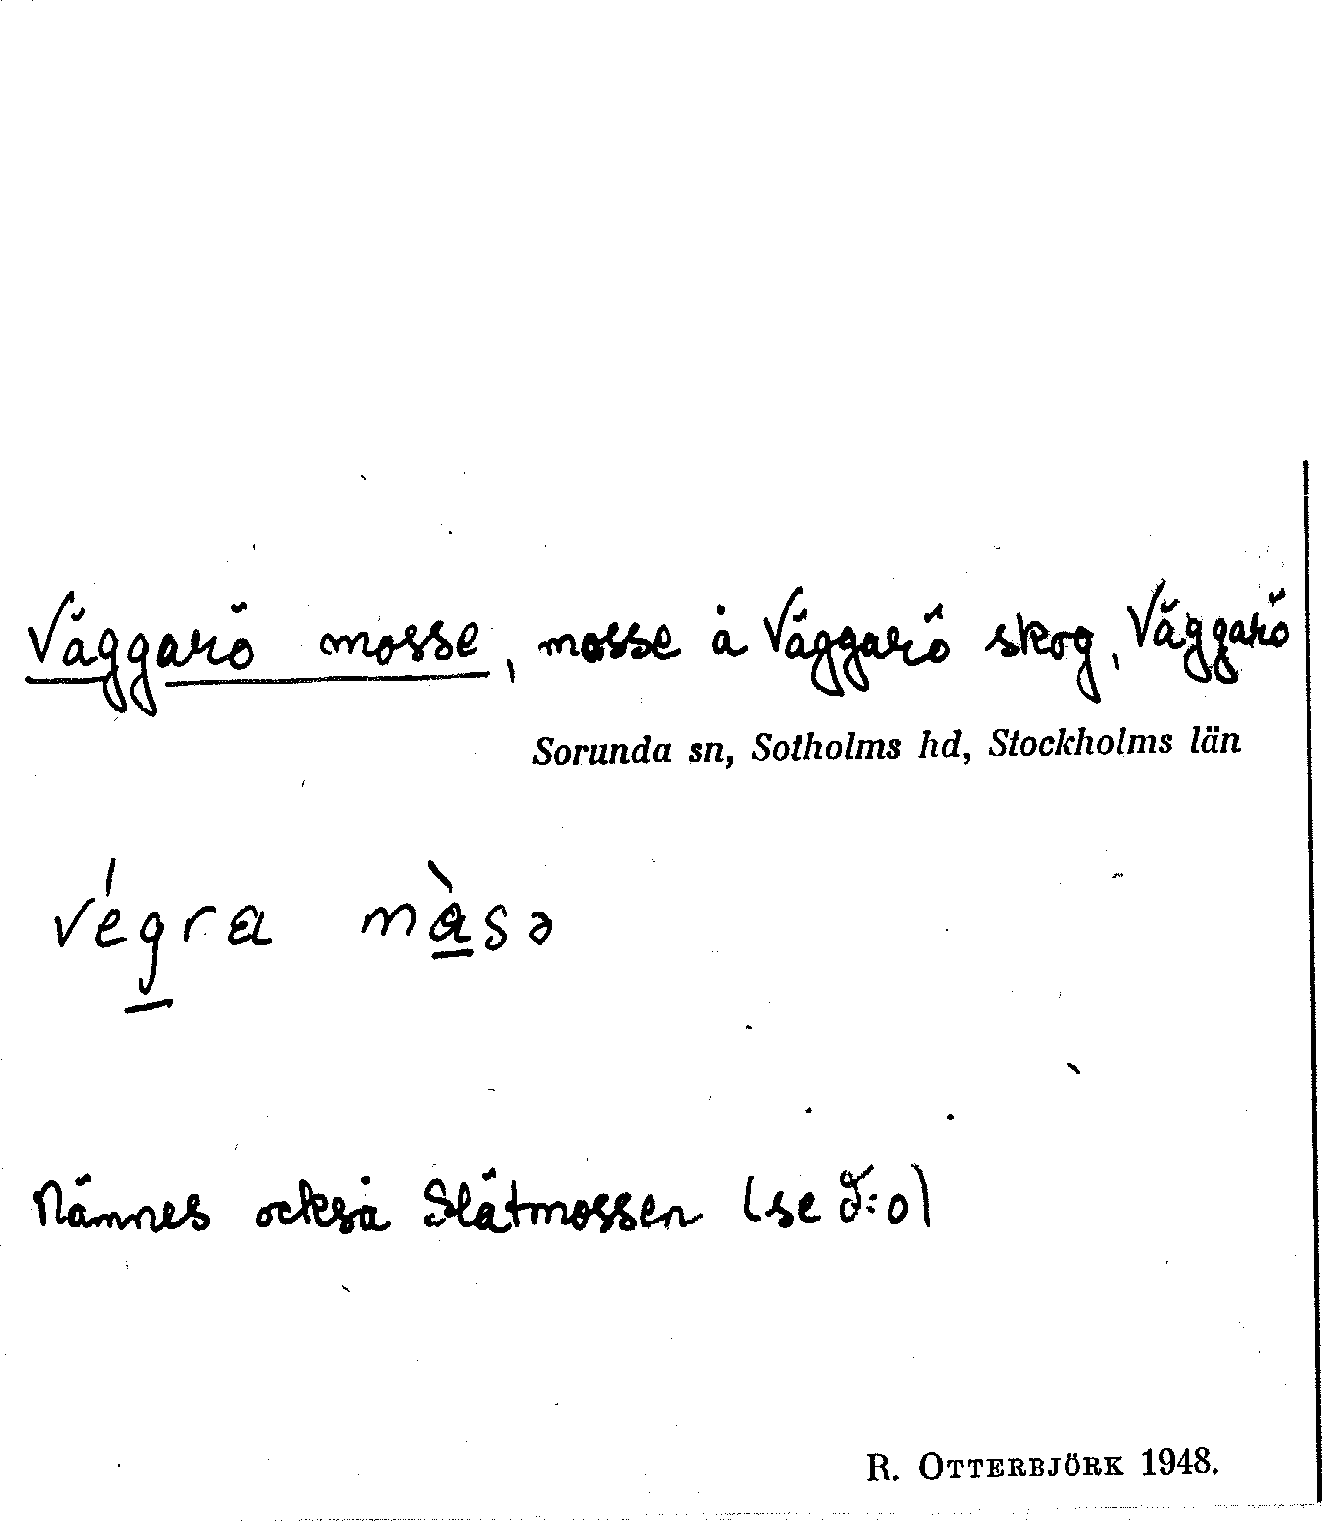 Väggarö mosse, mosse å Väggarö skog, Väggarö
Sorunda sn, Sotholms hd, Stockholms län
végra màsə
Nämnes också Slätmossen (se d:o)
R. OTTERBJÖRK 1948.